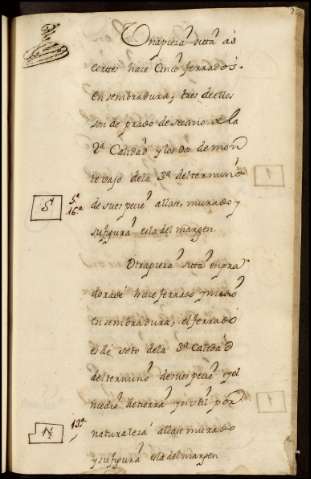 Otra pieza sitta a s
cortes hace Cinco ferrados
en sembradura, tres de ellos
son de prado de secano de la
2ª Calidad y los dos de mon
te vajo de la 3ª del termino
de su especie allase murado y
su figura es la del margen
Otra pieza sitta en pra
hace ferrado y medio
en sembradura, el ferrado
es de soto de la 3ª Calidad
del termino de su especie y el
medio de tierra ynutil por
naturaleza allase murado
y su figura es la del margen